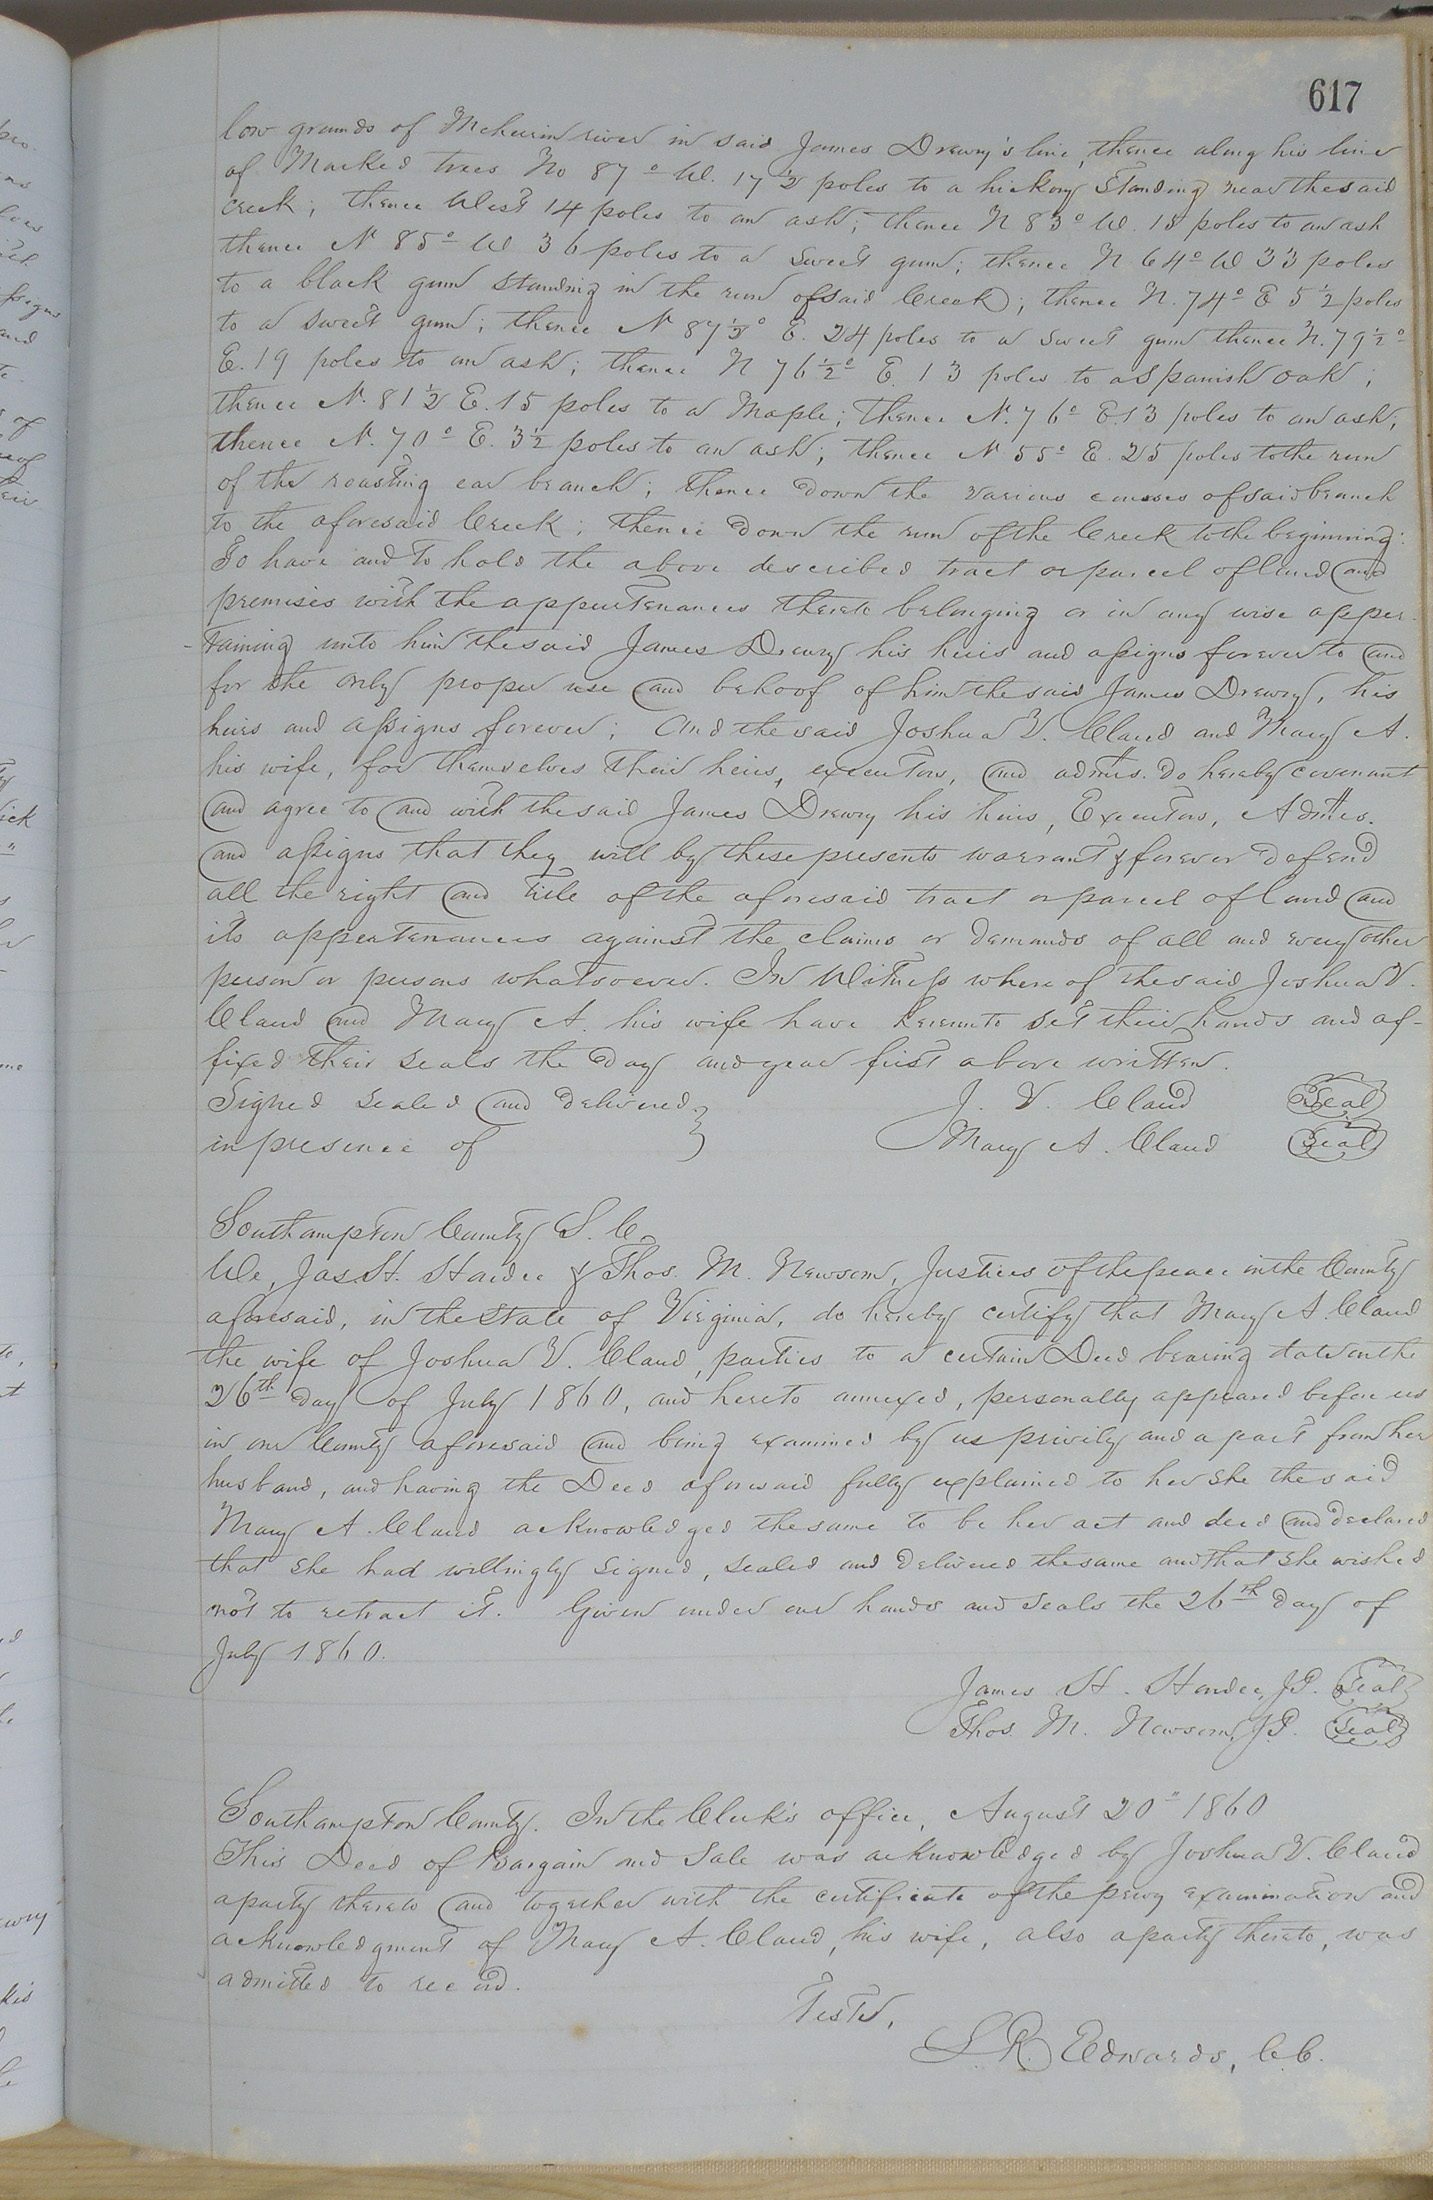 617
low grounds of Meherrin river in said James Drewry's line, thence along his line
of Marked trees No 87° W. 17 1/2 poles to a hickory standing near the said
creek; thence West 14 poles to an ash; thence N 83° W. 15 poles to an ash
thence N 85° W 36 poles to a sweet gum; thence N 64° W 33 poles
to a black gum standing in the run of said Creek; thence N. 74° E 5 1/2 poles
to a sweet gum; thence N 87 1/2° E. 24 poles to a sweet gum thence N. 79 1/2°
E. 19 poles to an ash; thence N 76 1/2° E. 13 poles to a Spanish Oak;
thence N. 81 1/2 E. 15 poles to a Maple; thence N. 76° E. 13 poles to an ash;
thence N. 70° E. 3 1/2 poles to an ash; thence N 55° E. 25 poles to the run
of the roasting ear branch; thence down the various courses of said branch
to the aforesaid Creek; thence down the run of the Creek to the beginning:
To have and to hold the above described tract or parcel of land and
premises with the appurtenances thereto belonging or in any wise apper-
-taining unto him the said James Drewry his heirs and assigns forever to and
for the only proper use and behoof of him the said James Drewry, his
heirs and assigns forever; And the said Joshua V. Claud and Mary A.
his wife, for themselves their heirs, executors, and admrs. do hereby covenant
and agree to and with the said James Drewry his heirs, Executors, Admrs.
and assigns that they will by these presents warrant & forever defend
all the right and title of the aforesaid tract or parcel of land and
its appurtenances against the claims or demands of all and every other
person or persons whatsoever. In Witness where of the said Joshua V.
Claud and Mary A. his wife have hereunto set their hands and af-
fixed their seals the day and year first above written.
Signed sealed and delivered } J. V. Claud Seal
in presence of Mary A. Claud Seal
Southampton County S. C.
We, Jas H. Hardee & Thos. M. Newsom, Justices of the peace in the County
aforesaid, in the State of Virginia, do hereby certify that Mary A. Claud
the wife of Joshua V. Claud, parties to a certain Deed bearing date on the
26th day of July 1860, and hereto annexed, personally appeared before us
in our County aforesaid and being examined by us privily and apart from her
husband, and having the Deed aforesaid fully explained to her she the said
Mary A. Claud acknowledged the same to be her act and deed and declared
that she had willingly signed, sealed and delivered the same and that she wished
not to retract it. Given under our hands and seals the 26th day of
July 1860.
James H. Hardee, J.P. Seal
Thos. M. Newsom, J.P. Seal
Southampton County. In the Clerk's office, August 20" 1860
This Deed of Bargain and Sale was acknowledged by Joshua V. Claud
a party thereto and together with the certificate of the privy examination and
acknowledgment of Mary A. Claud, his wife, also a party thereto, was
admitted to record.
Teste,
L. R. Edwards, C.C.